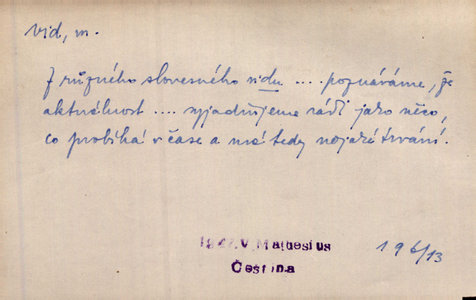 vid, m.
Z různého slovesného vidu .... poznáváme, že
aktuálnost .... vyjadřujeme rádi jako něco,
co probíhá v čase a má tedy nějaké trvání.
V. Mathesius
Čeština
196/13